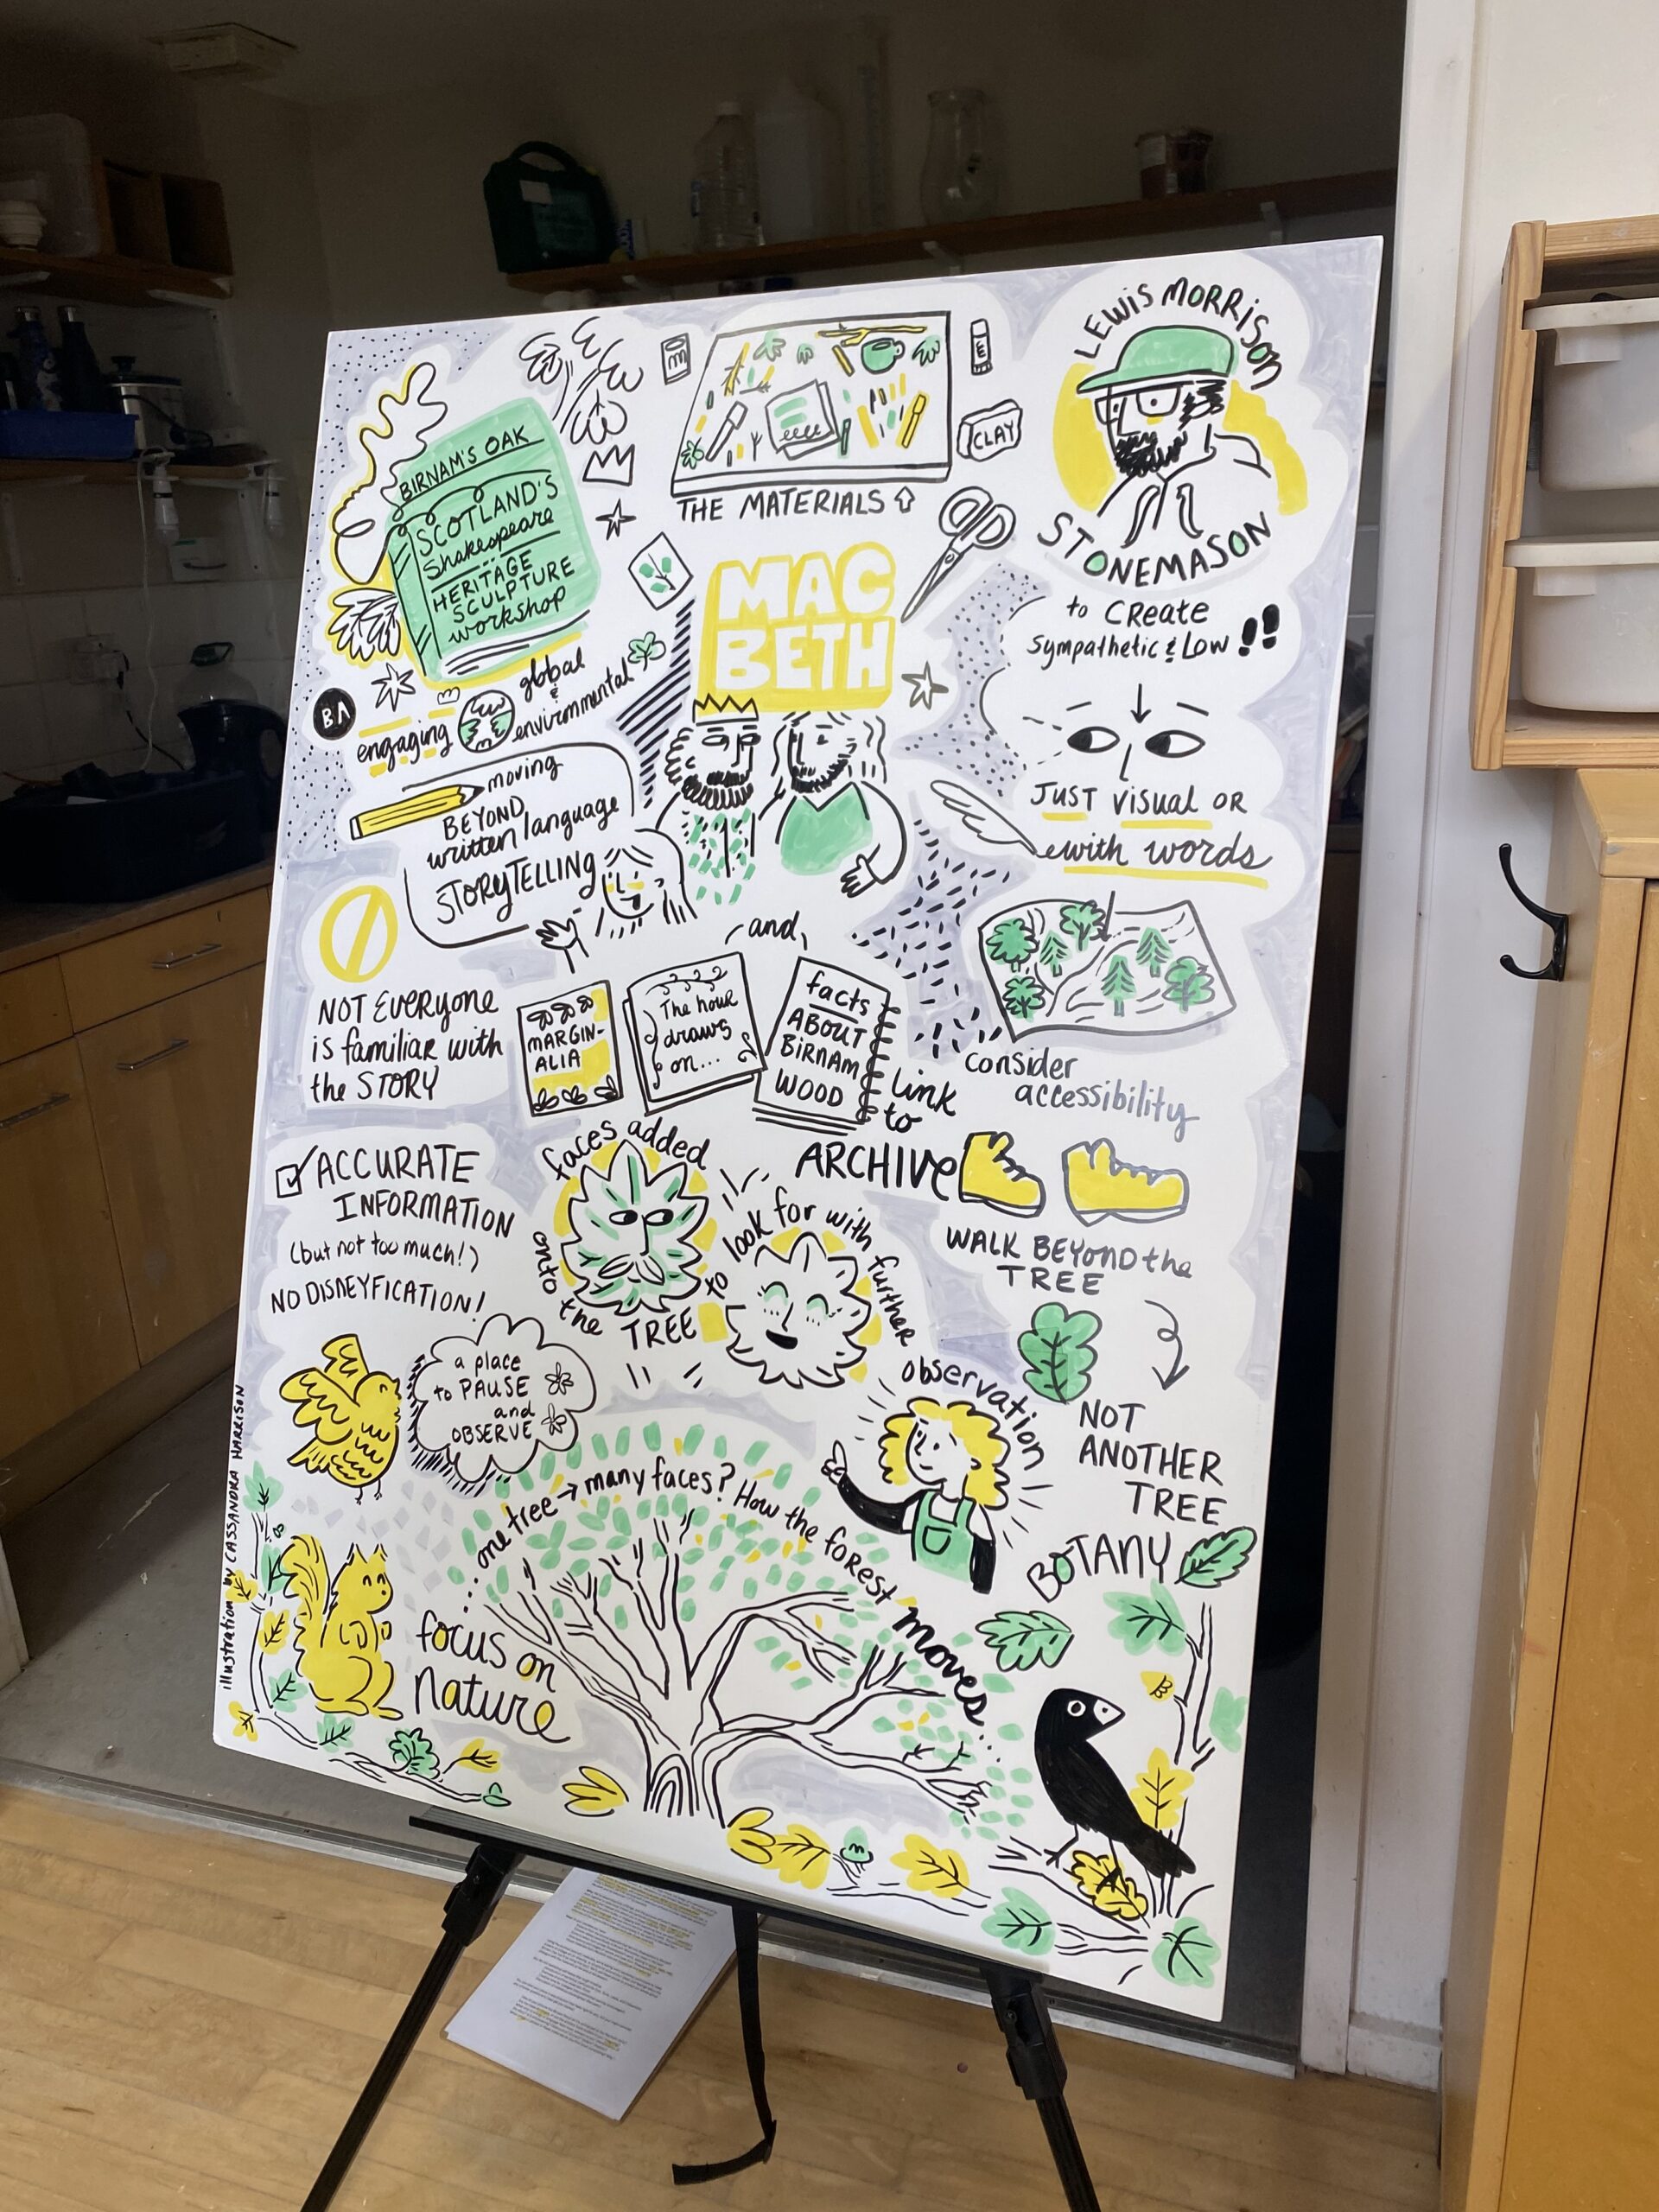 BIRNAM'S OAK
SCOTLAND'S
Shakespeare
HERITAGE
SCULPTURE
workshop
THE MATERIALS
E
CLAY
LEWIS MORRISON
STONEMASON
to CREATE
sympathetic & LOW
JUST visual OR
with words
consider
accessibility
MAC
BETH
BA
engaging
global
&
environmental
moving
BEYOND
written language
STORYTELLING
NOT EVERYONE
is familiar with
the STORY
and
MARGIN-
ALIA
The hour
draws
on...
facts
ABOUT
BIRNAM
WOOD
link
to
ARCHIVE
WALK BEYOND the
TREE
NOT
ANOTHER
TREE
BOTANY
ACCURATE
INFORMATION
(but not too much!)
NO DISNEYFICATION!
faces added
onto the
TREE to
look for with
further
observation
a place
to PAUSE
and
OBSERVE
...one tree → many faces? How the forest moves...
focus on
nature
illustration by CASSANDRA HARRISON